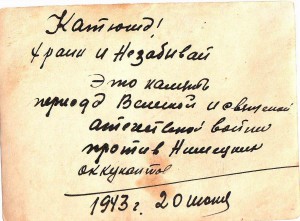 Катюша!
Храни и Незабывай
Это память
периода Великой и священной
отечественной войны
против Немецких
оккупантов
1943 г. 20 июня